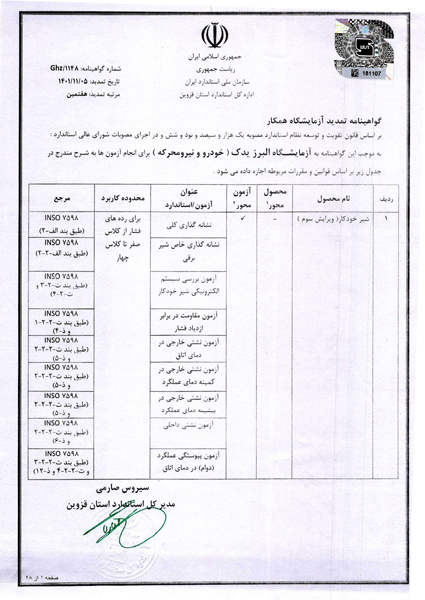 جمهوری اسلامی ایران
ریاست جمهوری
سازمان ملی استاندارد ایران
اداره کل استاندارد استان قزوین
شماره گواهینامه: Ghz/۱۱۴۸
تاریخ تمدید: ۱۴۰۱/۱۱/۰۵
مرتبه تمدید: هفتمین
181107
گواهینامه تمدید آزمایشگاه همکار
بر اساس قانون تقویت و توسعه نظام استاندارد مصوبه یک هزار و سیصد و نود و شش و در اجرای مصوبات شورای عالی استاندارد :
به موجب این گواهینامه به آزمایشگاه البرز یدک ( خودرو و نیرومحرکه ) برای انجام آزمون ها به شرح مندرج در
جدول زیر بر اساس قوانین و مقررات مربوطه اجازه داده می شود .
ردیف
نام محصول
محصول محور۱
آزمون محور۲
عنوان آزمون/استاندارد
محدوده کاربرد
مرجع
۱
شیر خودکار( ویرایش سوم )
-
✓
برای رده های
فشار از کلاس
صفر تا کلاس
چهار
نشانه گذاری کلی
INSO ۷۵۹۸
(طبق بند الف-۲)
نشانه گذاری خاص شیر
برقی
INSO ۷۵۹۸
(طبق بند الف-۲-۲)
آزمون بررسی سیستم
الکترونیکی شیر خودکار
INSO ۷۵۹۸
(طبق بند ت-۲-۳ و
ت-۲-۴)
آزمون مقاومت در برابر
ازدیاد فشار
INSO ۷۵۹۸
(طبق بند ت-۲-۲-۱
و ذ-۴)
آزمون نشتی خارجی در
دمای اتاق
INSO ۷۵۹۸
(طبق بند ت-۲-۲-۲
و ذ-۵)
آزمون نشتی خارجی در
کمینه دمای عملکرد
INSO ۷۵۹۸
(طبق بند ت-۲-۲-۲
و ذ-۵)
آزمون نشتی خارجی در
بیشینه دمای عملکرد
INSO ۷۵۹۸
(طبق بند ت-۲-۲-۲
و ذ-۵)
آزمون نشتی داخلی
INSO ۷۵۹۸
(طبق بند ت-۲-۲-۲
و ذ-۶)
آزمون پیوستگی عملکرد
(دوام) در دمای اتاق
INSO ۷۵۹۸
(طبق بند ت-۲-۲-۳
و ت-۲-۲-۴ و ذ-۱۲)
سیروس صارمی
مدیر کل استاندارد استان قزوین
صفحه ۱ از ۲۸